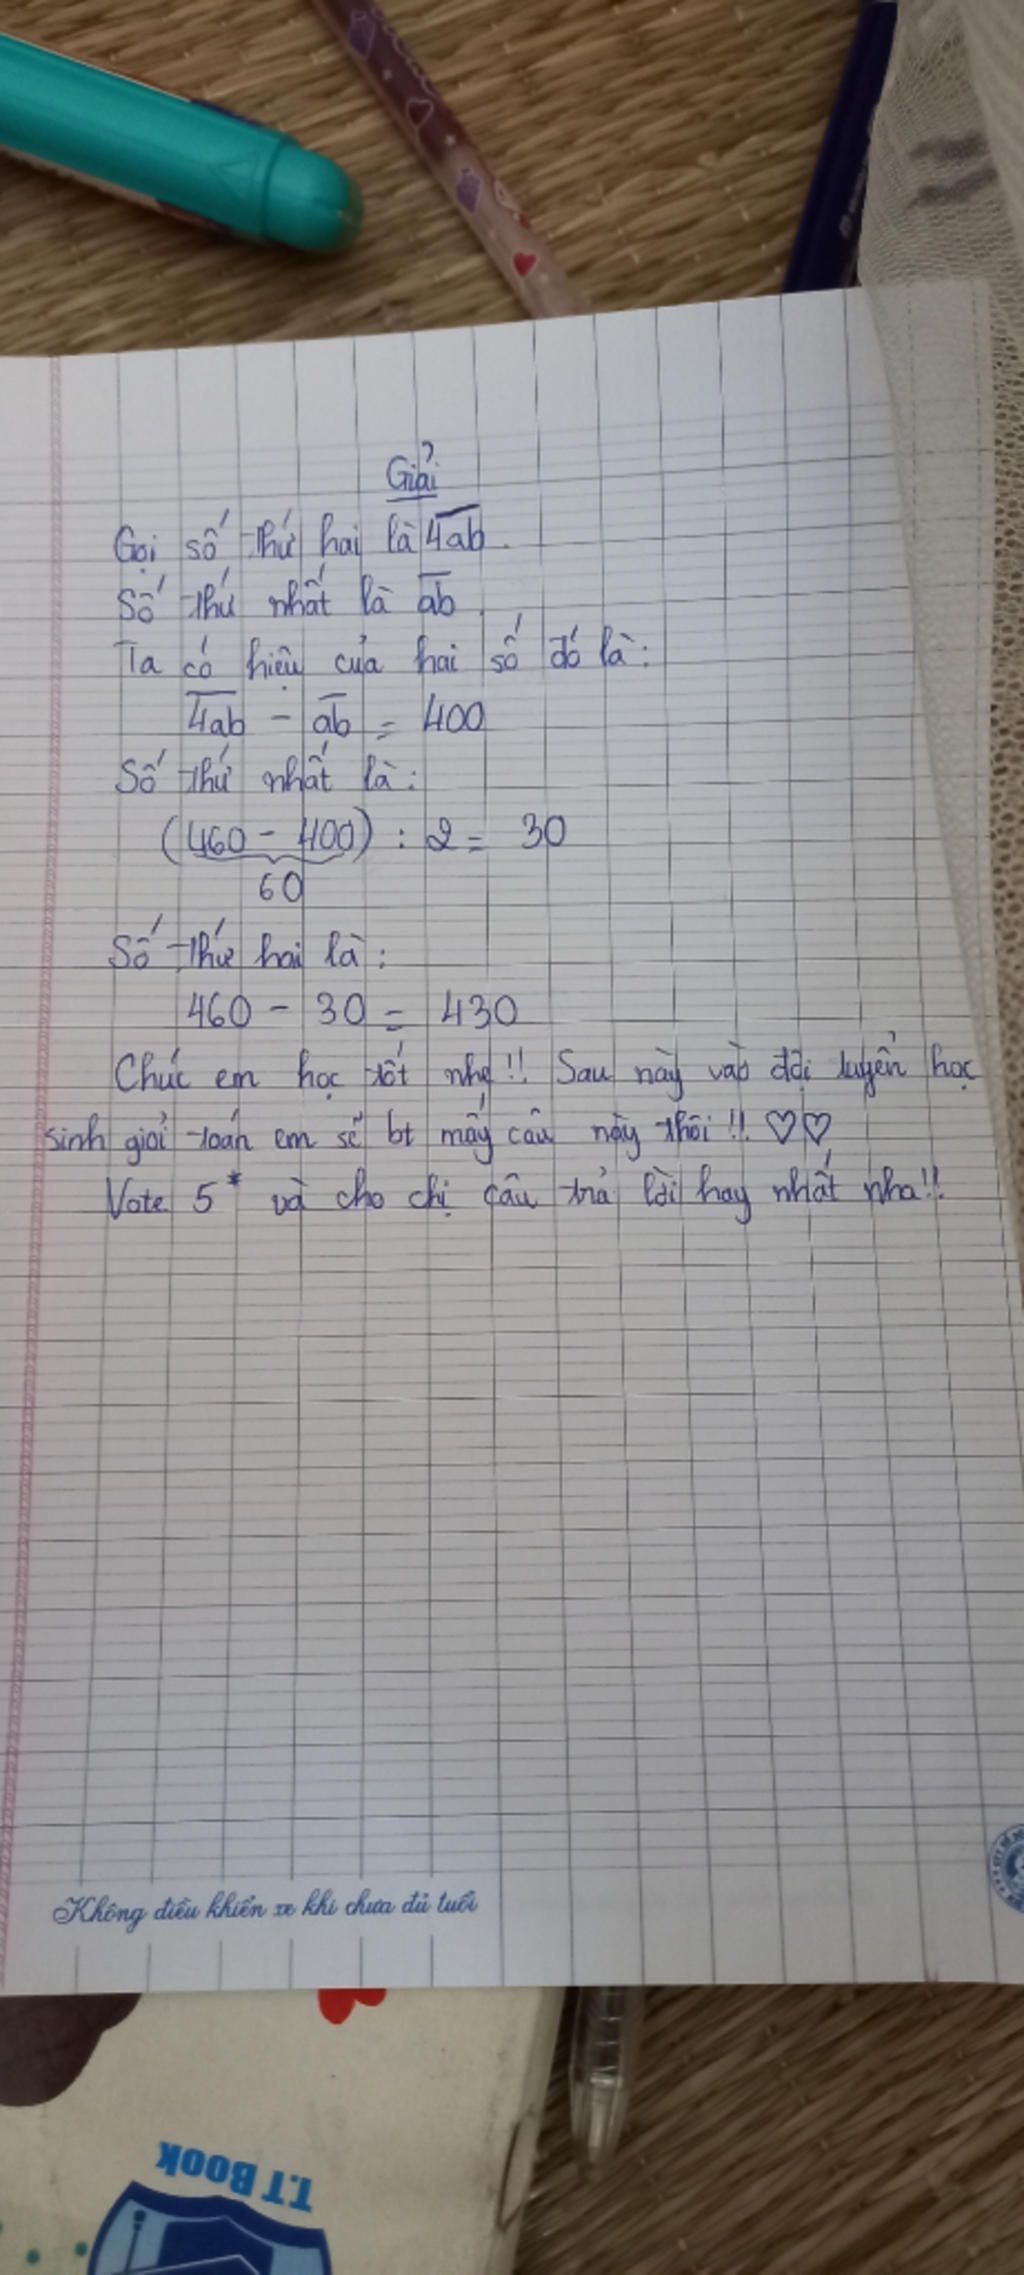 Giải
Gọi số thứ hai là 4ab.
Số thứ nhất là ab.
Ta có hiệu của hai số đó là:
4ab - ab = 400
Số thứ nhất là:
(460 - 400) : 2 = 30
60
Số thứ hai là:
460 - 30 = 430
Chúc em học tốt nha!! Sau này vào đội tuyển học
sinh giỏi toán em sẽ bt mấy câu này thôi!! ♡♡
Vote 5* và cho chị câu trả lời hay nhất nha!!
Không điều khiển xe khi chưa đủ tuổi
T.T BOOK